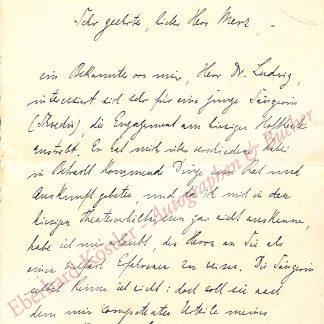 Sehr geehrter, lieber Herr Merz,
ein Bekannter von mir, Herr Dr. Ludwig,
interessiert sich sehr für eine junge Sängerin
(Altistin), die Engagement am hiesigen Hoftheater
anstrebt. Er hat mich über verschiedene dabei
in Betracht kommende Dinge um Rat und
Auskunft gebeten, und da ich mich in den
hiesigen Theaterverhältnissen gar nicht auskenne,
habe ich mir erlaubt, den Herrn an Sie als
einen Erfahrenen zu weisen. Die Sängerin
selbst kenne ich nicht; doch soll sie nach
dem mir competenten Urteile meines
Eberhard Köstler - Autographen & Bücher